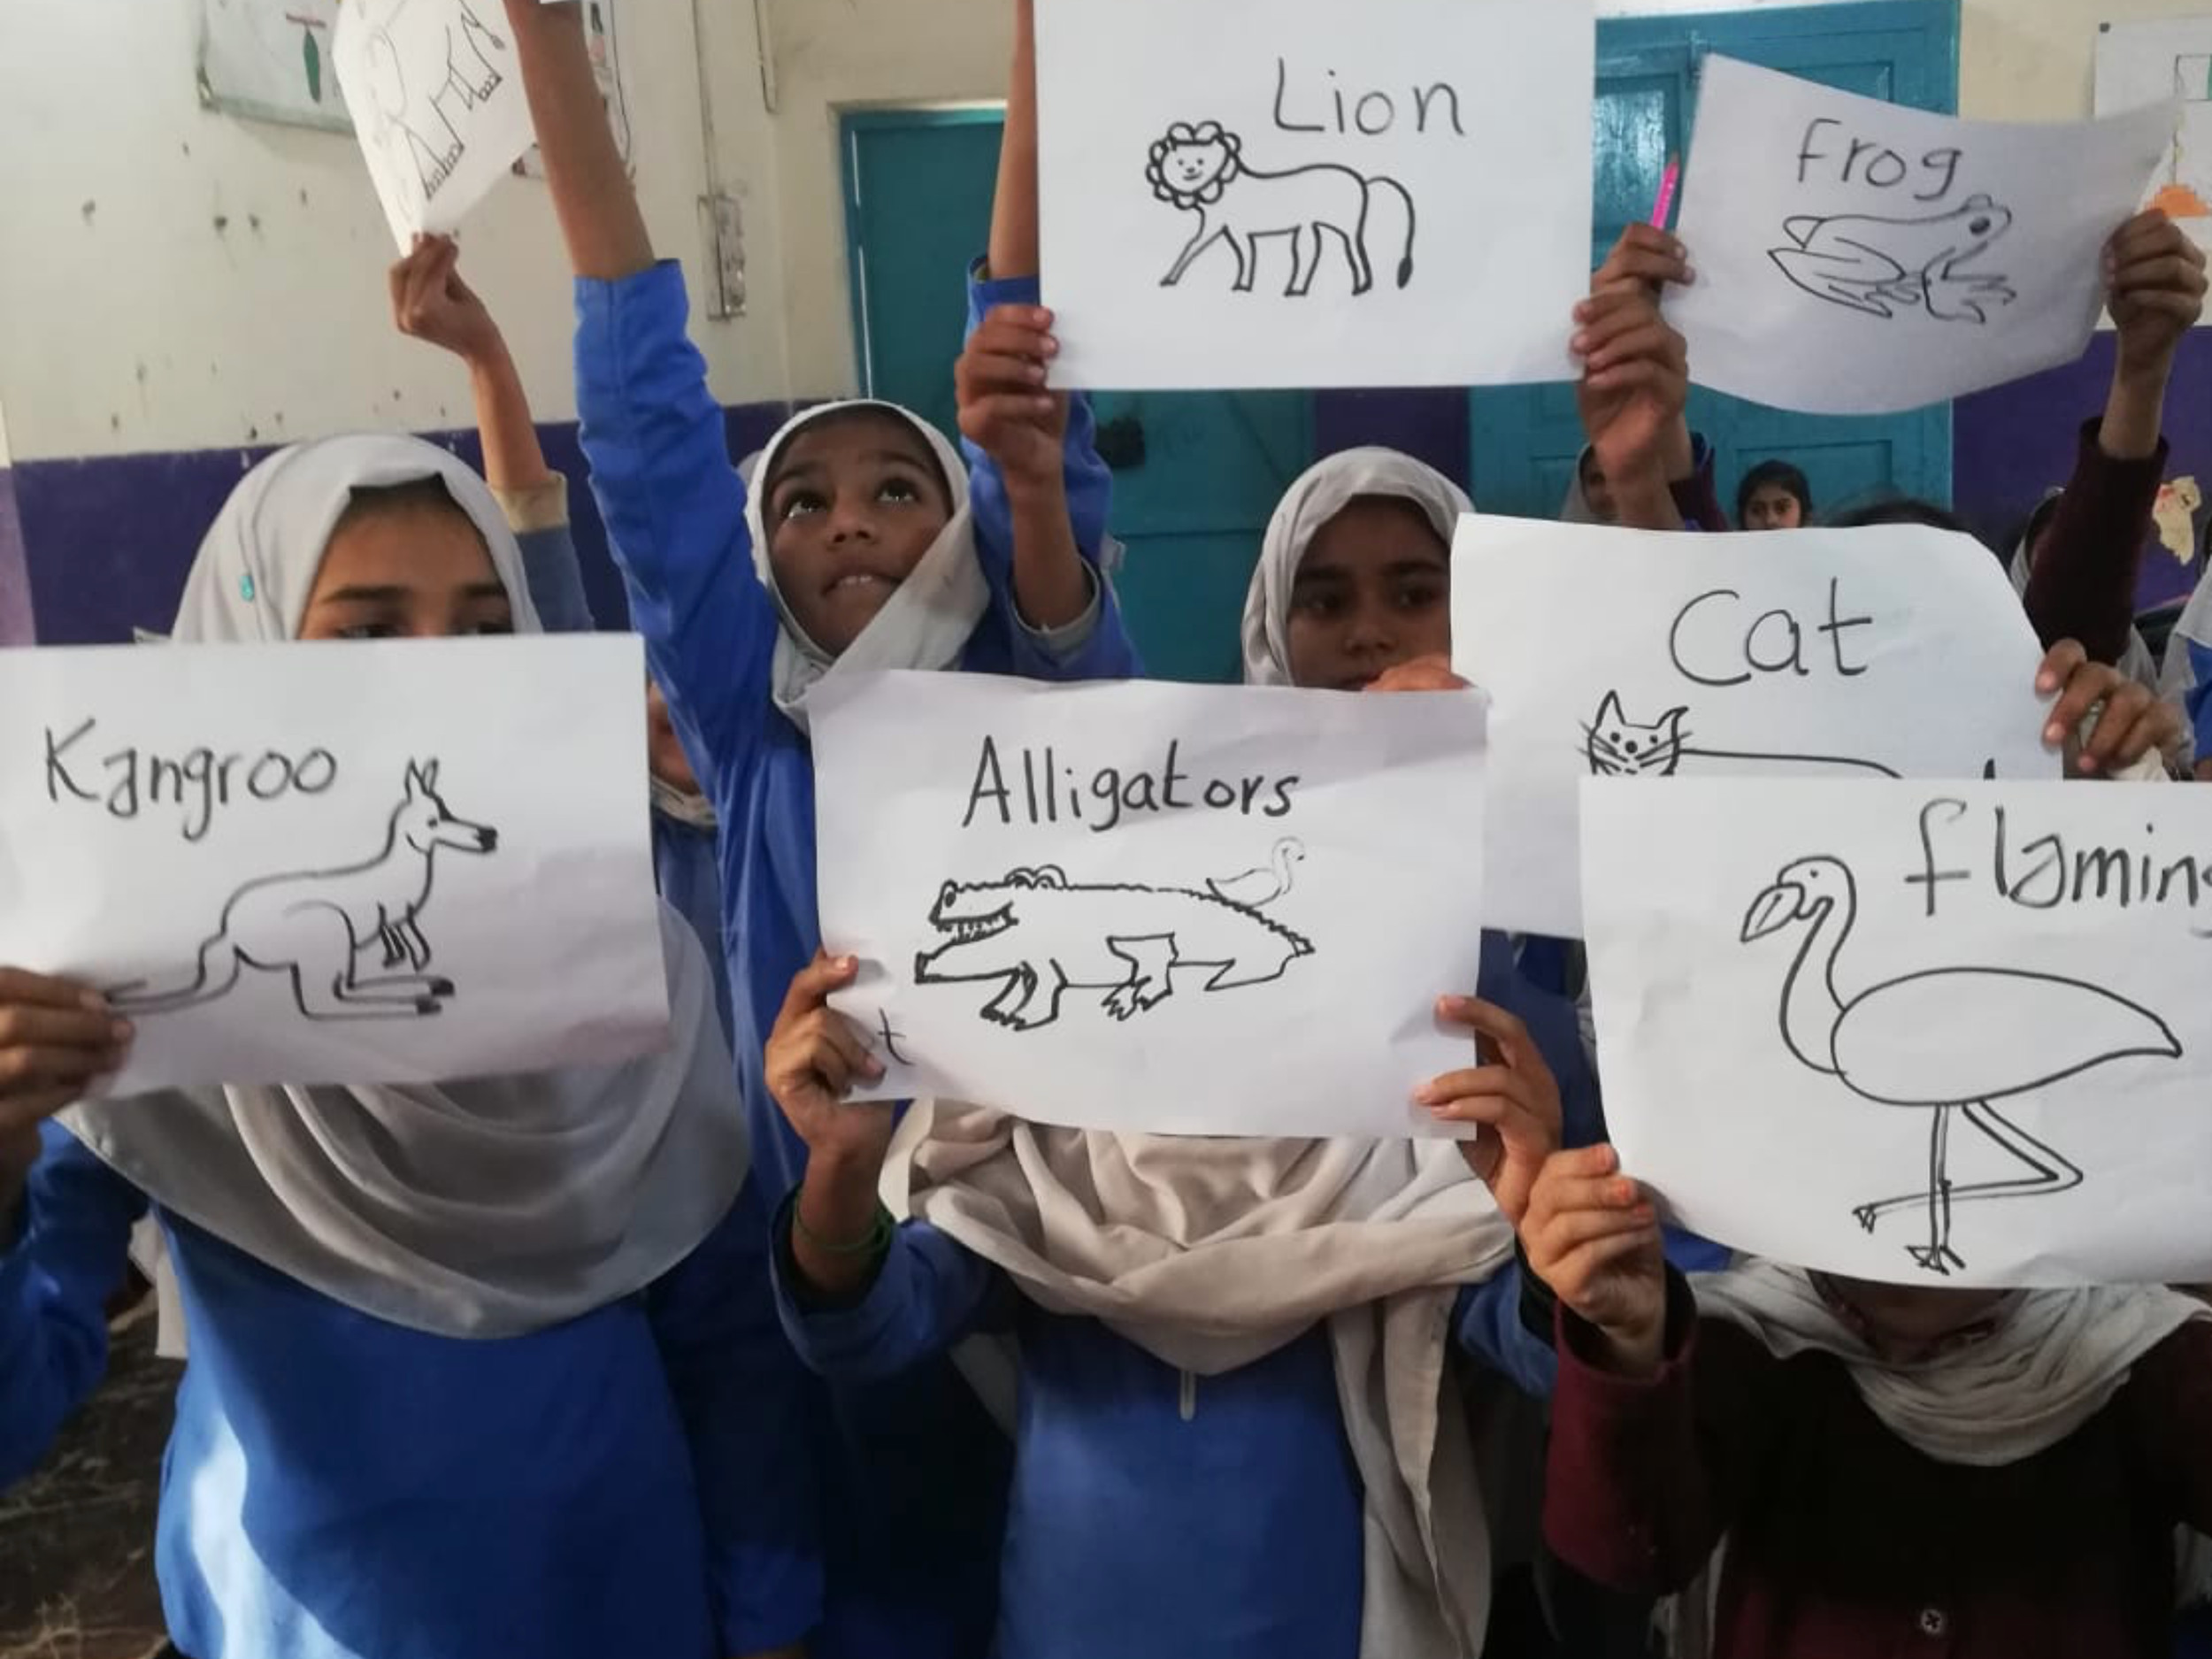 Lion
Frog
Cat
Kangroo
Alligators
flaming
t